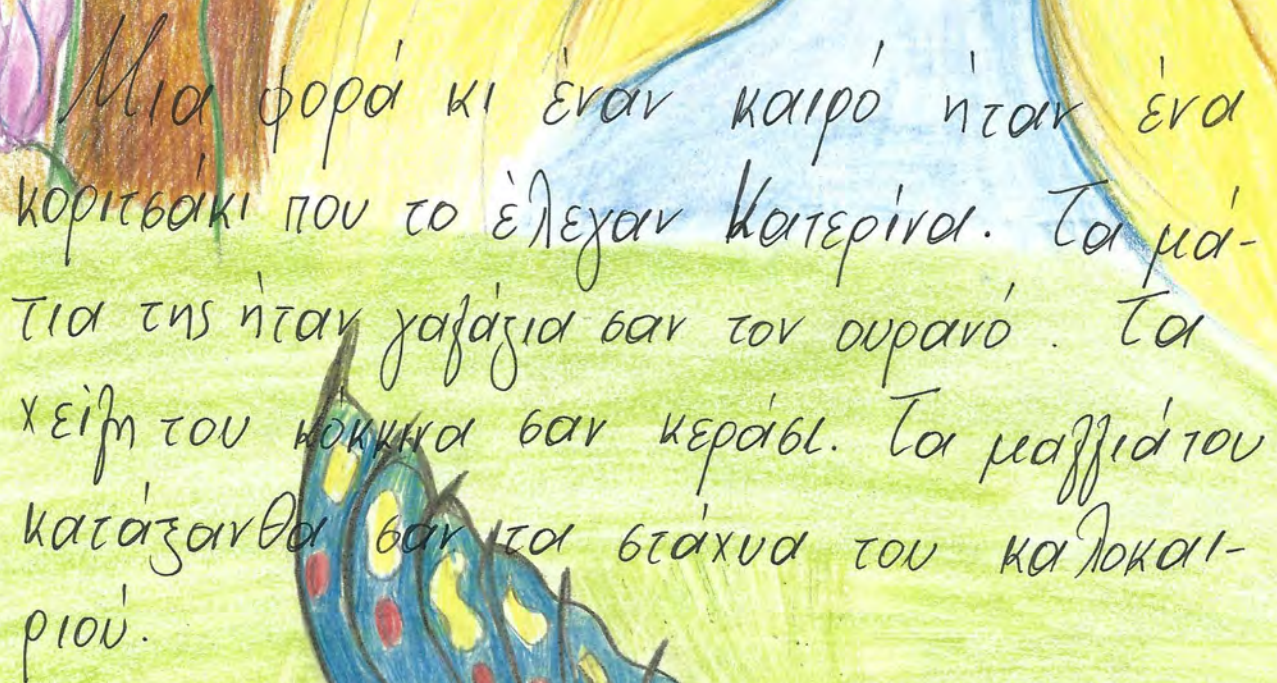 Μια φορά κι έναν καιρό ήταν ένα
κοριτσάκι που το έλεγαν Κατερίνα. Τα μά-
τια της ήταν γαλάζια σαν τον ουρανό. Τα
χείλη του κόκκινα σαν κεράσι. Τα μαλλιά του
κατάξανθα σαν τα στάχυα του καλοκαι-
ριού.